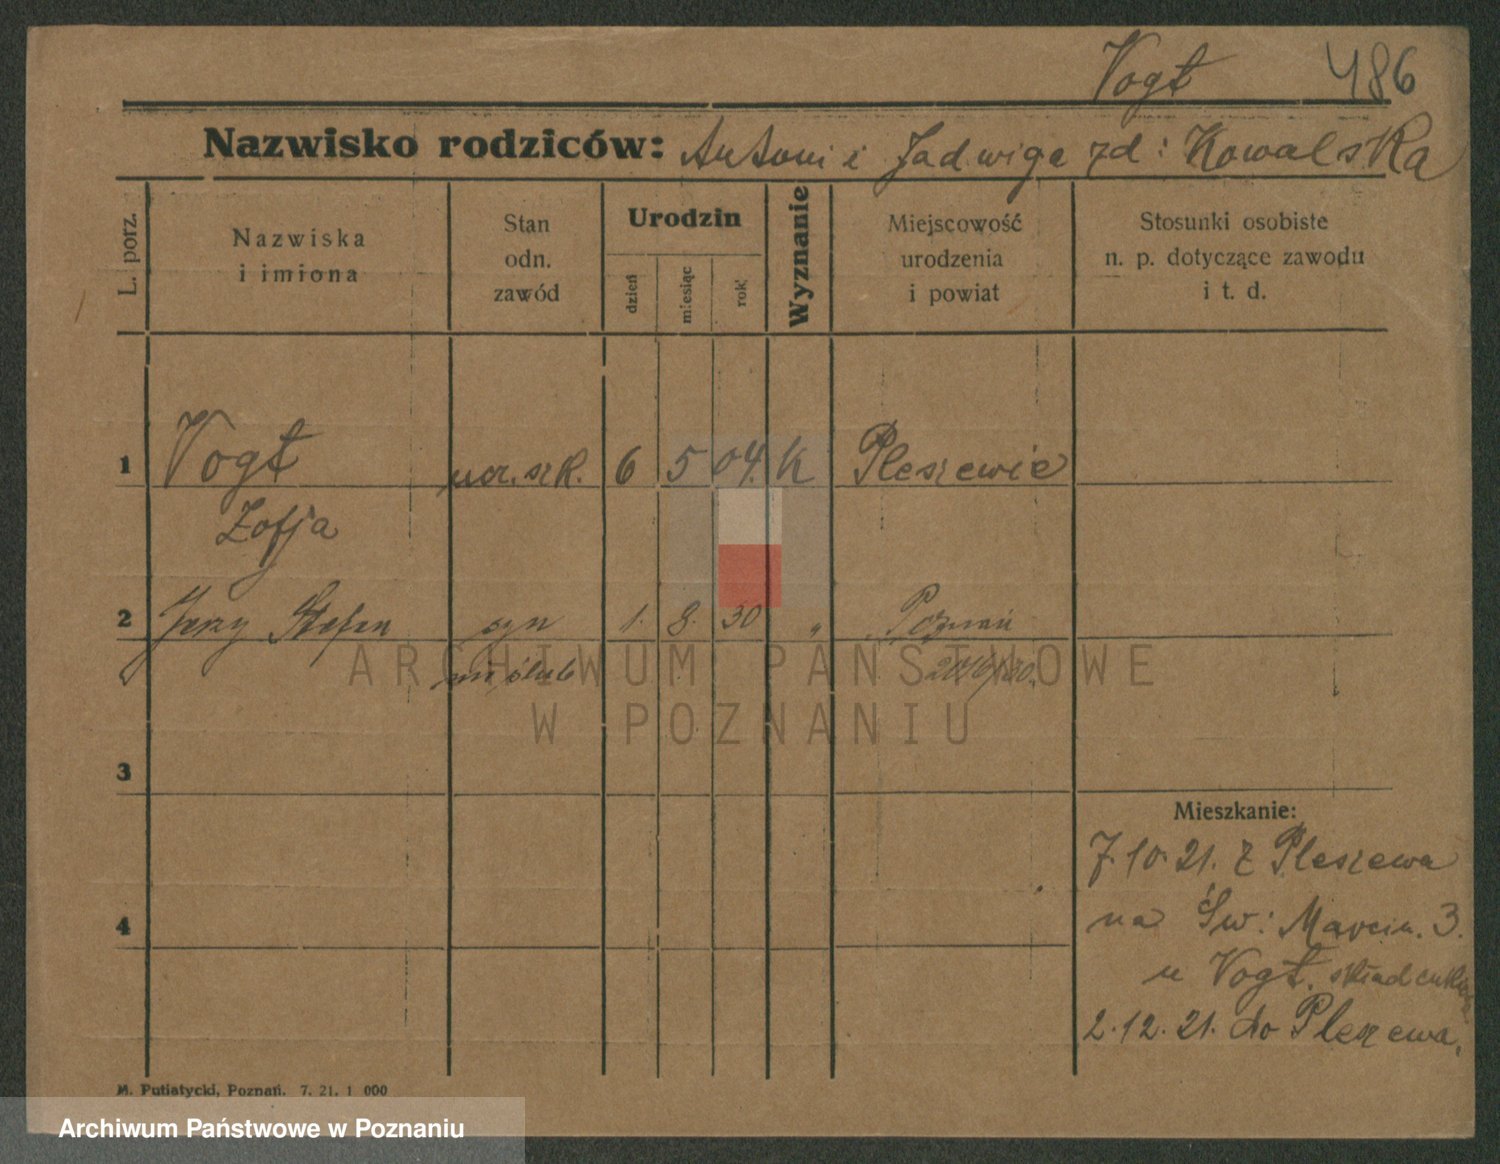 Vogt 486
Nazwisko rodziców: Antoni i Jadwiga zd: Kowalska
L. porz.
Nazwiska
i imiona
Stan
odn.
zawód
Urodzin
dzień
miesiąc
rok
Wyznanie
Miejscowość
urodzenia
i powiat
Stosunki osobiste
n. p. dotyczące zawodu
i t. d.
1 Vogt ucz. szk. 6 5 04. K Pleszewie
Zofja
2 Jerzy Stefan syn 1. 8. 30 „ Poznań
nieślub
ARCHIWUM PAŃSTWOWE
W POZNANIU
3
Mieszkanie:
7.10.21. z Pleszewa
4
na Św: Marcin. 3.
u Vogt. skład
2.12.21. do Pleszewa.
M. Putiatycki, Poznań. 7. 21. 1 000
Archiwum Państwowe w Poznaniu